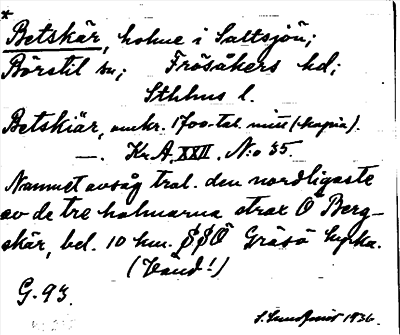 *
Betskär, holme i Saltsjön;
Börstil sn; Frösåkers hd;
Sthlms l.
Betskiär, omkr. 1700-tal. mitt (kopia).
—. Kr.A. XXII, N:o 35.
Namnet avsåg trol. den nordligaste
av de tre holmarna strax Ö Berg-
skär, bel. 10 km. SSÖ Gräsö kyrka.
(Vänd!)
G. 93.
1936.